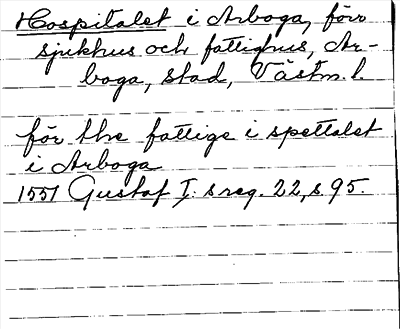 Hospitalet i Arboga, förr
sjukhus och fattighus, Ar-
boga, stad, Västm. l.
för the fattige i spettalet
i Arboga
1551 Gustaf I:s reg. 22, s. 95.